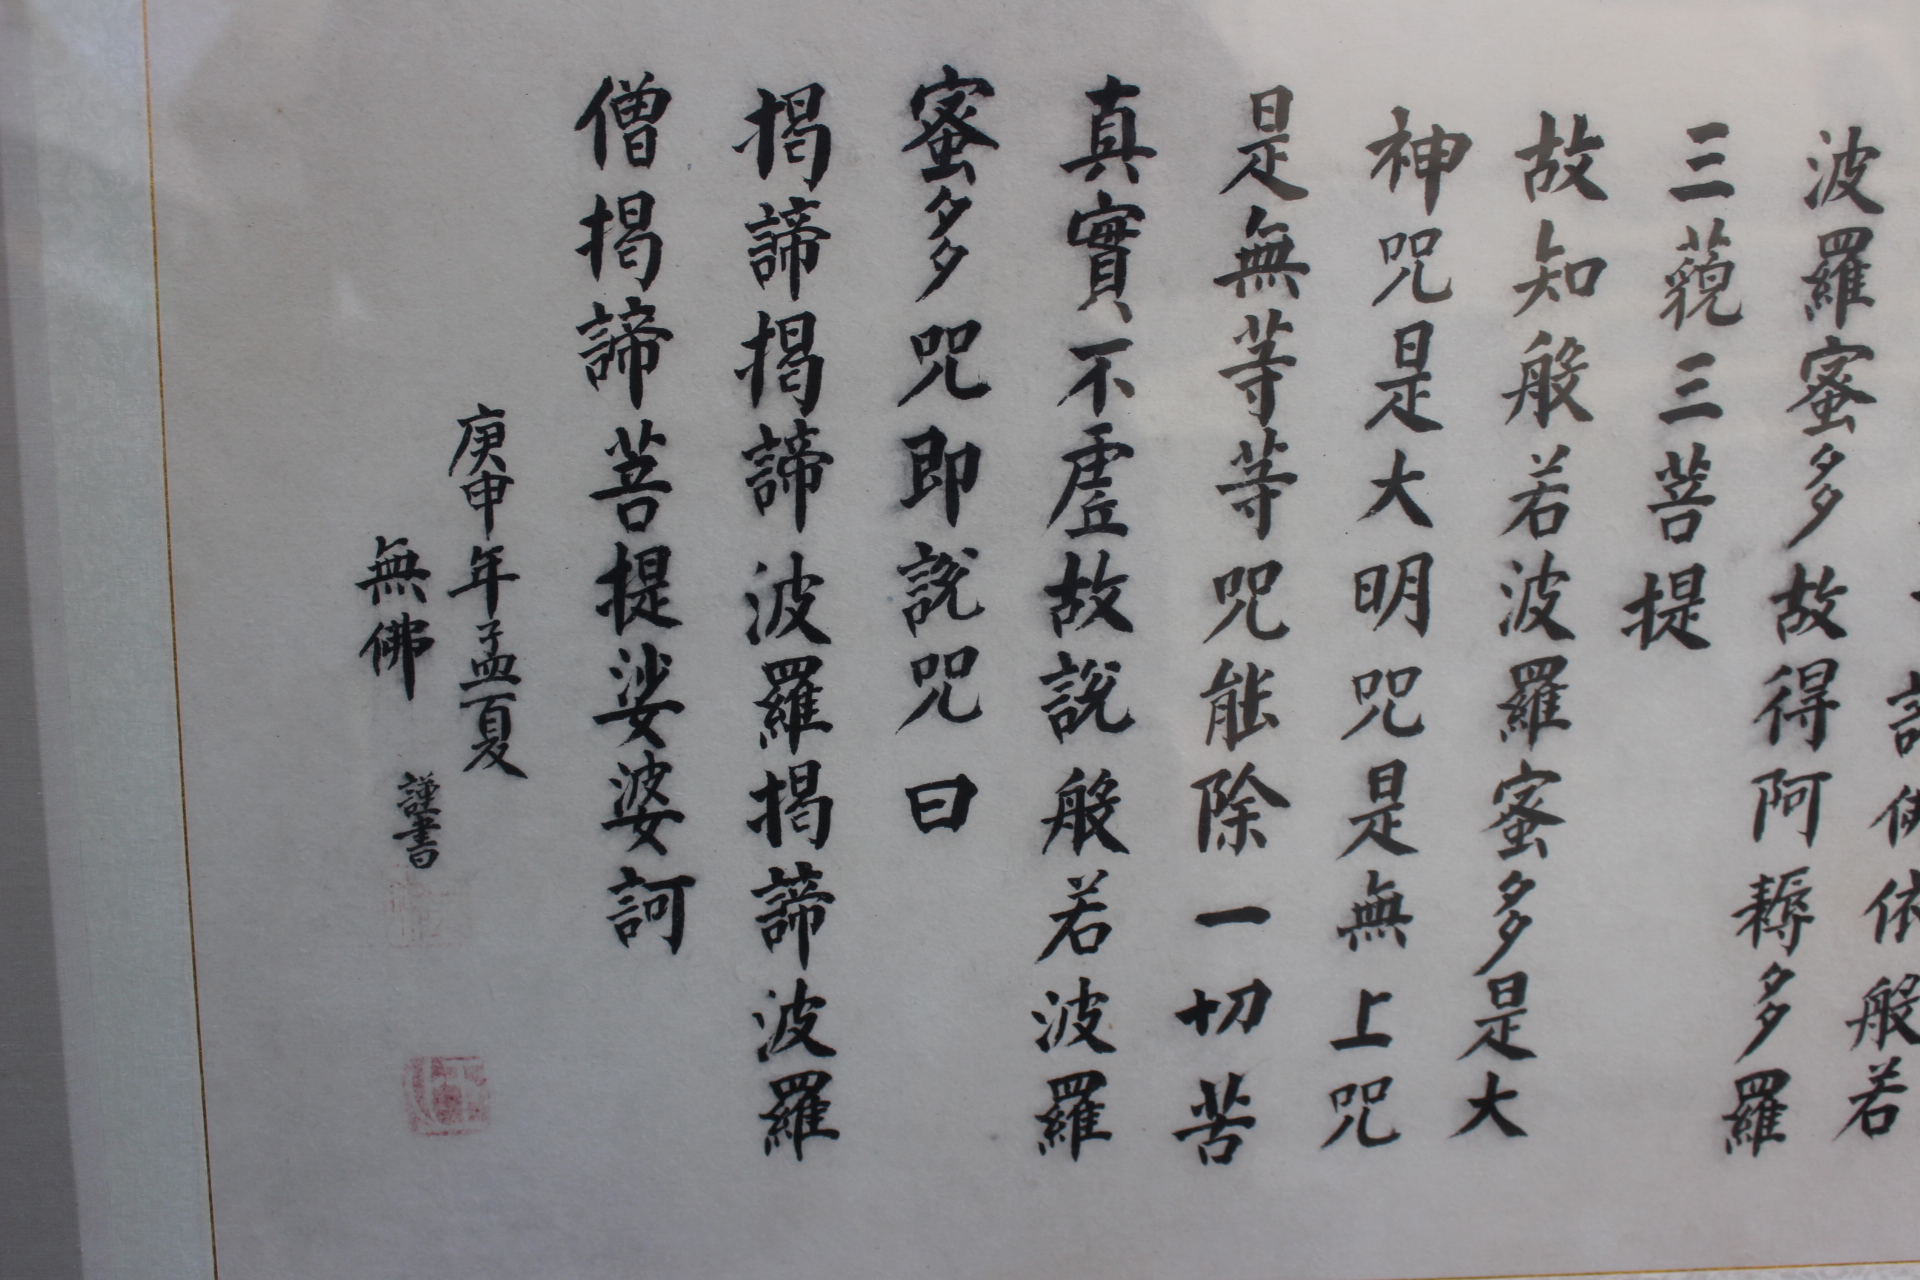 諸佛依般若
波羅蜜多故得阿耨多羅
三藐三菩提
故知般若波羅蜜多是大
神咒是大明咒是無上咒
是無等等咒能除一切苦
真實不虛故說般若波羅
蜜多咒即說咒曰
揭諦揭諦波羅揭諦波羅
僧揭諦菩提娑婆訶
庚申年孟夏
無佛 謹書